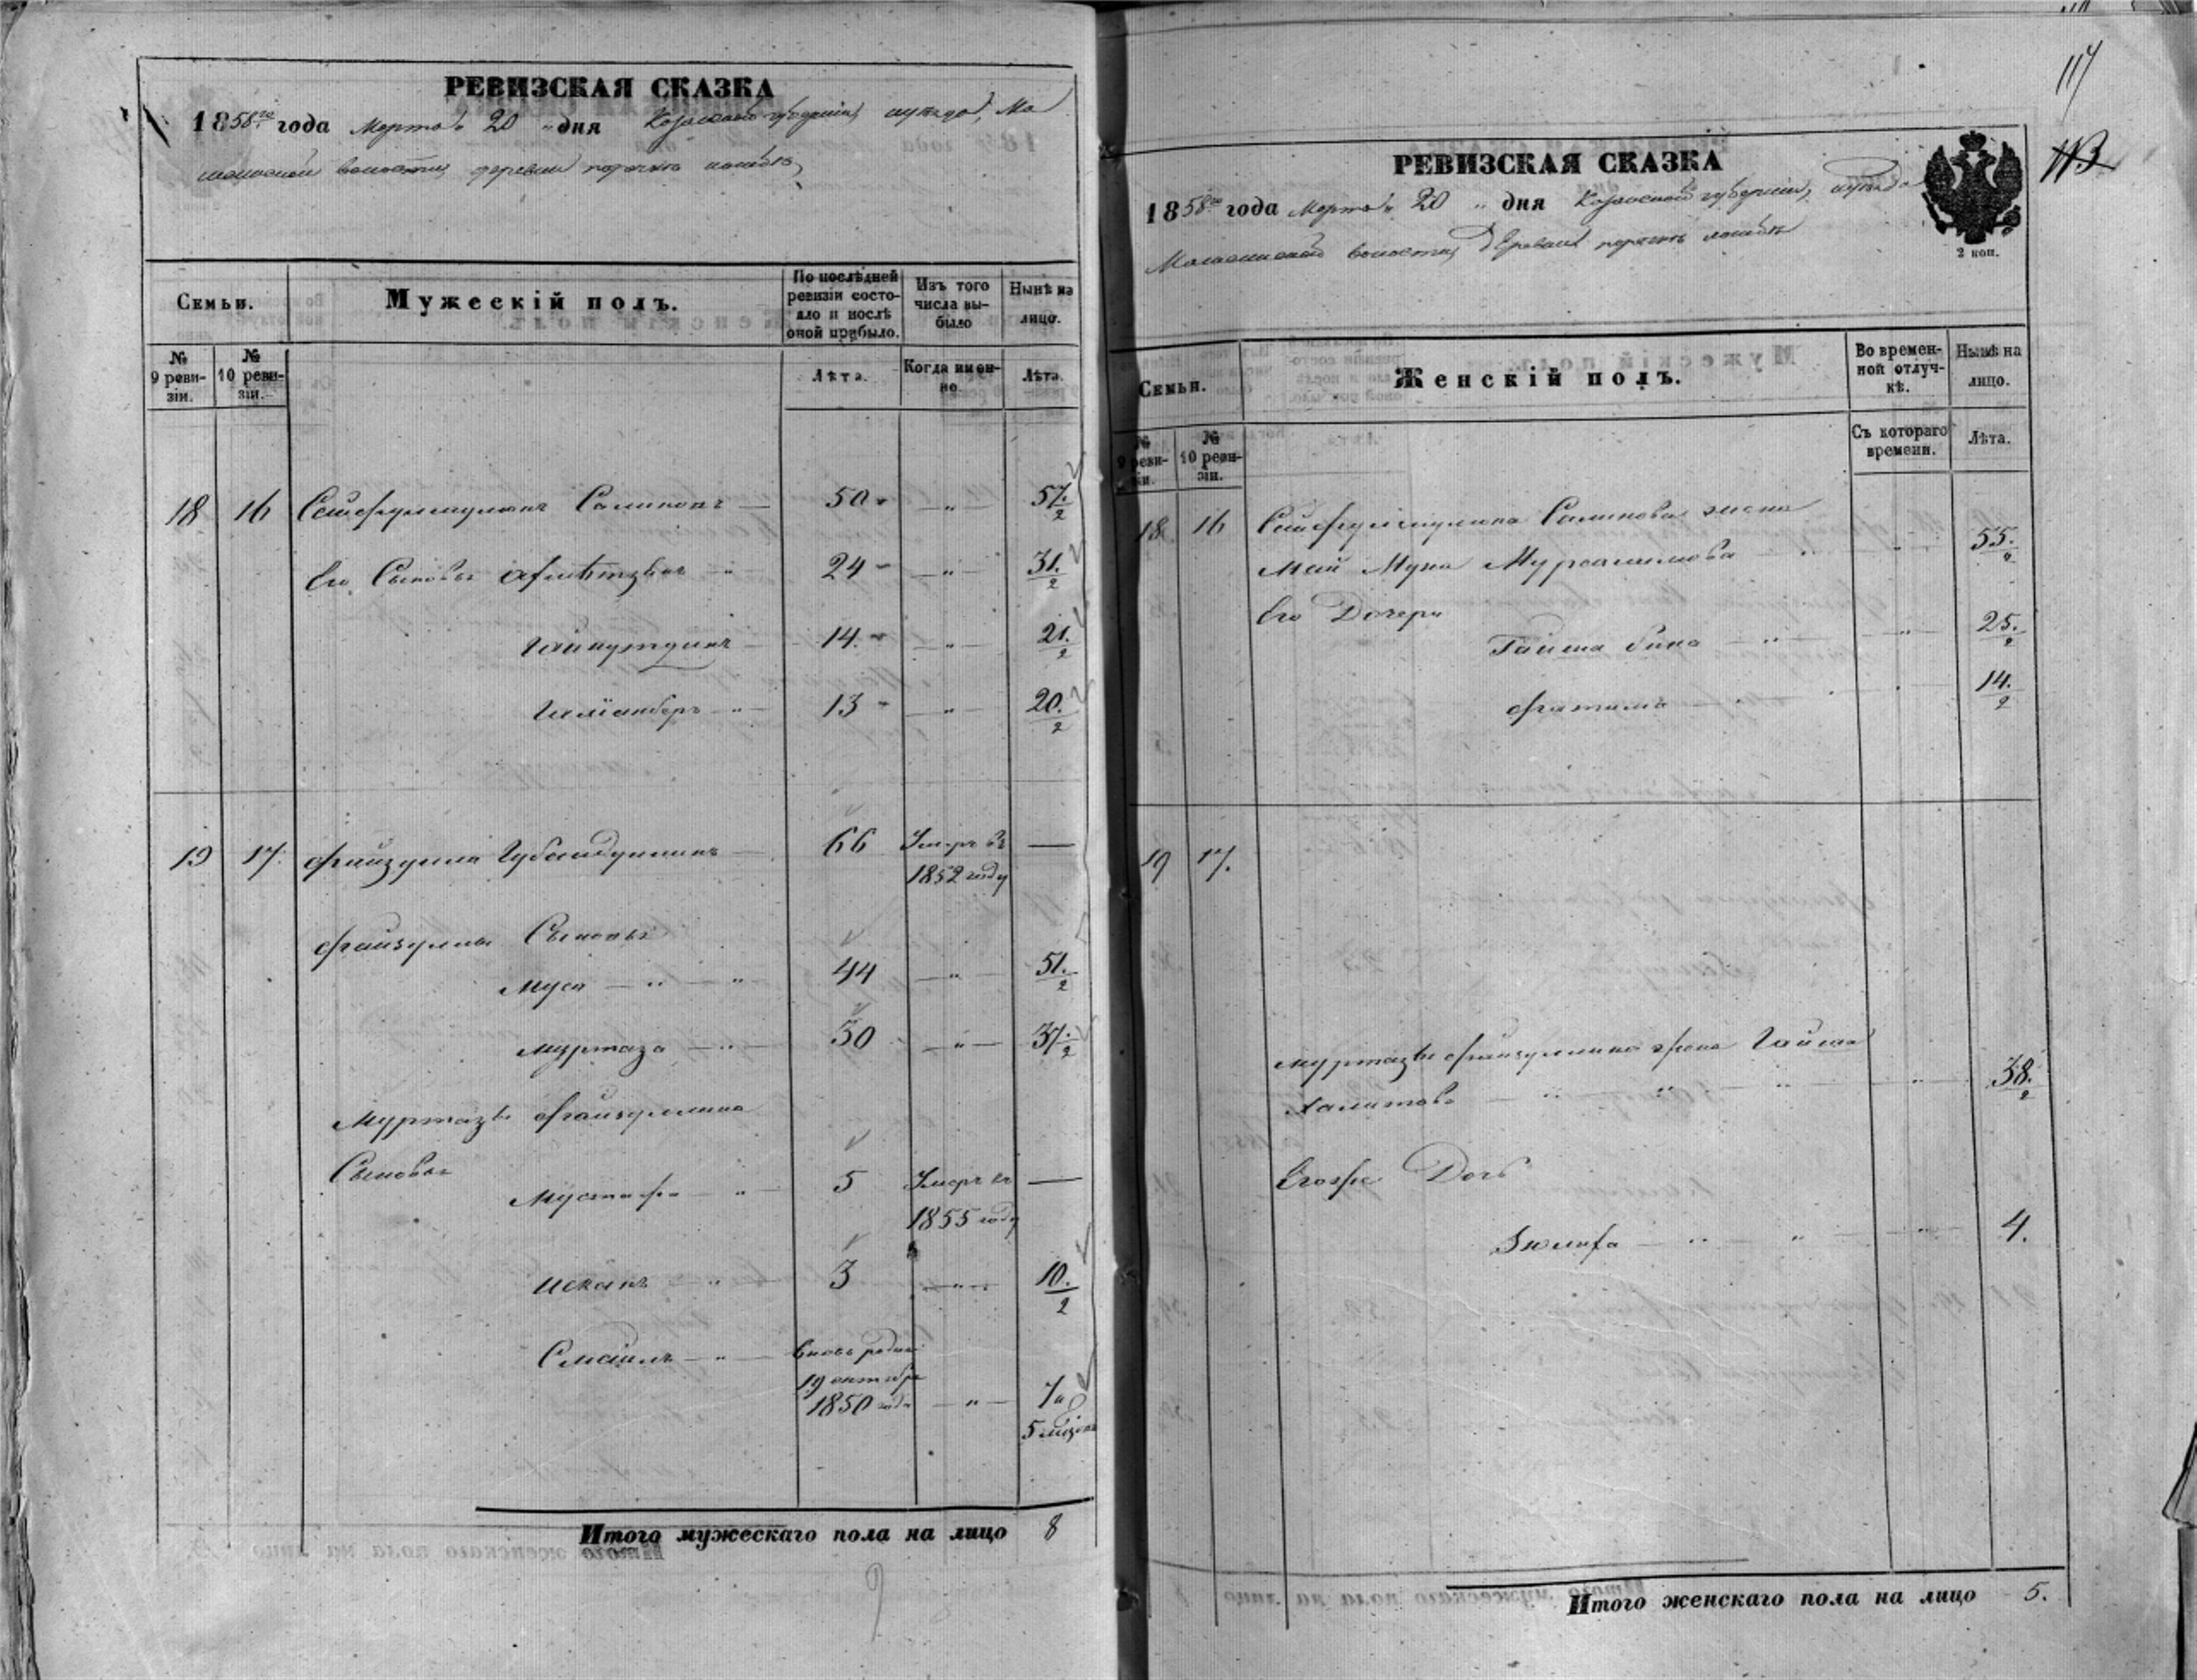 РЕВИЗСКАЯ СКАЗКА
1858го года Марта 20 дня Казанской губерніи, уѣзда, Ма
волости, деревни
Семьи.
Мужескій полъ.
По послѣдней ревизіи состояло и послѣ оной прибыло.
Изъ того числа выбыло
Нынѣ на лицо.
№ 9 ревизіи.
№ 10 ревизіи.
Лѣта.
Когда именно.
Лѣта.
18 16 Сейфульмулюкъ Салиховъ — 50 — " — 57. 1/2
Его Сыновья — " 24 — " — 31. 1/2
Гайнутдинъ — 14. — " — 21. 1/2
" 13 — " — 20. 1/2
19 17. Файзулла Губайдуллинъ — 66 Умеръ въ —
1852 году
Файзуллы Сыновья
Муса — " — " 44 — " — 51. 1/2
Муртаза — " 30 — " — 37. 1/2
Муртазы Файзуллина
Сыновья
Мустафа — " 5 Умеръ въ —
1855 году
Исхакъ — " 3 — " — 10. 1/2
Смаилъ — " — вновь рожд.
19 октября
1850 года — " — 7 и
5 мѣсяц.
Итого мужескаго пола на лицо 8
9
117
113
РЕВИЗСКАЯ СКАЗКА
1858го года Марта 20 " дня Казанской губерніи, уѣзда
волости, Деревни
2 коп.
Семьи.
Женскій полъ.
Во временной отлучкѣ.
Нынѣ на лицо.
№ 9 ревизіи.
№ 10 ревизіи.
Съ котораго времени.
Лѣта.
18 16 Сейфульмулюка Салихова жена
Мурсалимова — " 55. 1/2
Его Дочери
Гайша бика — " — " — 25. 1/2
Фатима — " 14. 1/2
19 17.
Муртазы Файзуллина жена Гайша
Халитова — " — " — " — 38. 1/2
Егоже Дочь
Зюлифа — " — " — " — 4.
Итого женскаго пола на лицо 5.